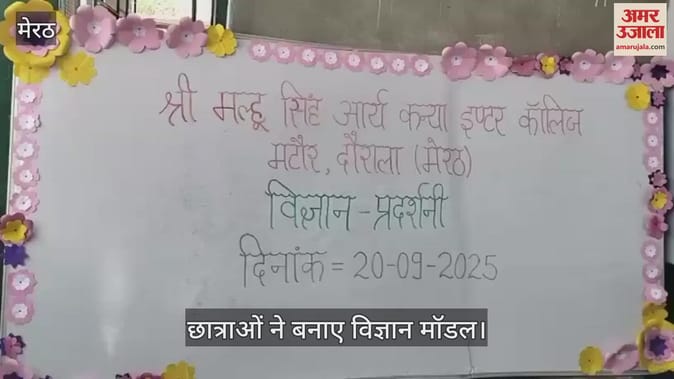 मेरठ
अमर
उजाला
amarujala.com
श्री मल्हू सिंह आर्य कन्या इण्टर कॉलिज
मटौर, दौराला (मेरठ)
विज्ञान - प्रदर्शनी
दिनांक = 20-09-2025
छात्राओं ने बनाए विज्ञान मॉडल।